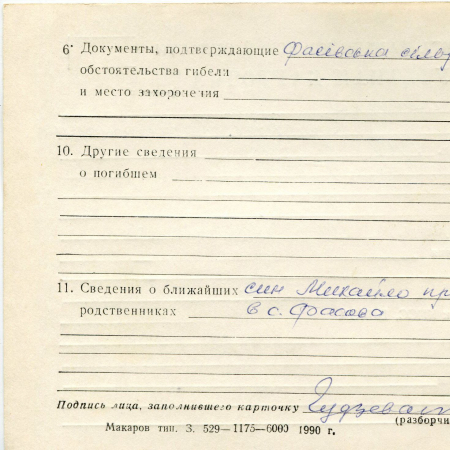 6. Документы, подтверждающие Фасівська сільр
обстоятельства гибели
и место захоронения
10. Другие сведения
о погибшем
11. Сведения о ближайших син Михайло пр
родственниках в с. Фасова
Подпись лица, заполнившего карточку
(разборчи
Макаров тип. З. 529—1175—6000 1990 г.